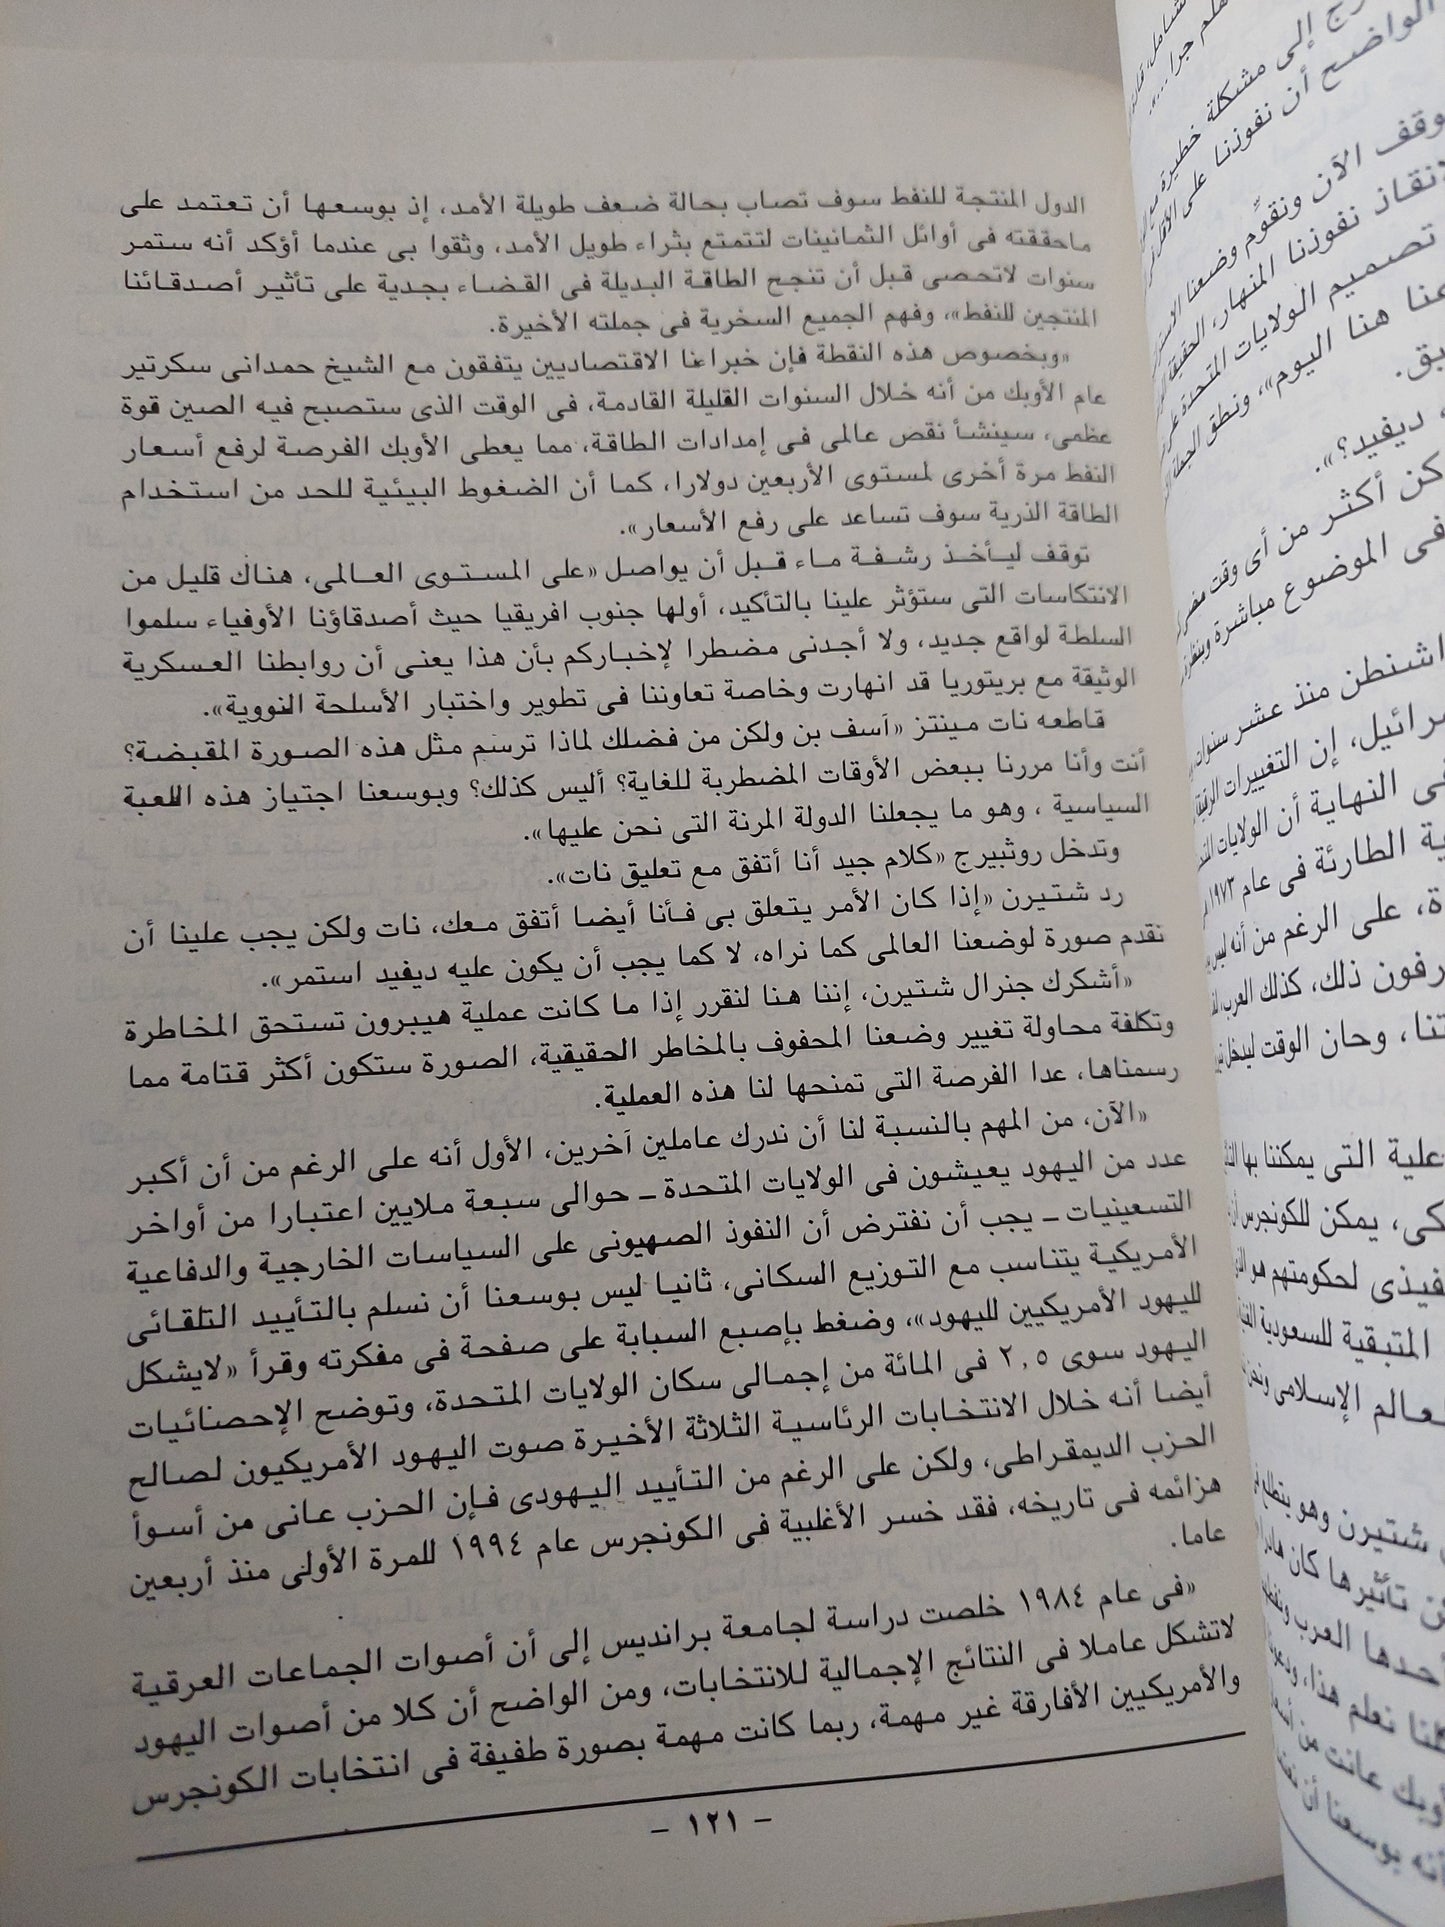 الدول المنتجة للنفط سوف تصاب بحالة ضعف طويلة الأمد، إذ بوسعها أن تعتمد على
ماحققته فى أوائل الثمانينات لتتمتع بثراء طويل الأمد، وثقوا بى عندما أؤكد أنه ستمر
سنوات لاتحصى قبل أن تنجح الطاقة البديلة فى القضاء بجدية على تأثير أصدقائنا
المنتجين للنفط»، وفهم الجميع السخرية فى جملته الأخيرة.
«وبخصوص هذه النقطة فإن خبراءنا الاقتصاديين يتفقون مع الشيخ حمدانى سكرتير
عام الأوبك من أنه خلال السنوات القليلة القادمة، فى الوقت الذى ستصبح فيه الصين قوة
عظمى، سينشأ نقص عالمى فى إمدادات الطاقة، مما يعطى الأوبك الفرصة لرفع أسعار
النفط مرة أخرى لمستوى الأربعين دولارا، كما أن الضغوط البيئية للحد من استخدام
الطاقة الذرية سوف تساعد على رفع الأسعار».
توقف ليأخذ رشفة ماء قبل أن يواصل «على المستوى العالمى، هناك قليل من
الانتكاسات التى ستؤثر علينا بالتأكيد، أولها جنوب افريقيا حيث أصدقاؤنا الأوفياء سلموا
السلطة لواقع جديد، ولا أجدنى مضطرا لإخباركم بأن هذا يعنى أن روابطنا العسكرية
الوثيقة مع بريتوريا قد انهارت وخاصة تعاوننا فى تطوير واختبار الأسلحة النووية».
قاطعه نات مينتز «آسف بن ولكن من فضلك لماذا ترسم مثل هذه الصورة المقبضة؟
أنت وأنا مررنا ببعض الأوقات المضطربة للغاية؟ أليس كذلك؟ وبوسعنا اجتياز هذه اللعبة
السياسية ، وهو ما يجعلنا الدولة المرنة التى نحن عليها».
وتدخل روثبيرج «كلام جيد أنا أتفق مع تعليق نات».
رد شتيرن «إذا كان الأمر يتعلق بى فأنا أيضا أتفق معك، نات ولكن يجب علينا أن
نقدم صورة لوضعنا العالمى كما نراه، لا كما يجب أن يكون عليه ديفيد استمر».
«أشكرك جنرال شتيرن، إننا هنا لنقرر إذا ما كانت عملية هيبرون تستحق المخاطرة
وتكلفة محاولة تغيير وضعنا المحفوف بالمخاطر الحقيقية، الصورة ستكون أكثر قتامة مما
رسمناها، عدا الفرصة التى تمنحها لنا هذه العملية.
«الآن، من المهم بالنسبة لنا أن ندرك عاملين آخرين، الأول أنه على الرغم من أن أكبر
عدد من اليهود يعيشون فى الولايات المتحدة ـ حوالى سبعة ملايين اعتبارا من أواخر
التسعينيات ـ يجب أن نفترض أن النفوذ الصهيونى على السياسات الخارجية والدفاعية
الأمريكية يتناسب مع التوزيع السكانى، ثانيا ليس بوسعنا أن نسلم بالتأييد التلقائى
لليهود الأمريكيين لليهود»، وضغط بإصبع السبابة على صفحة فى مفكرته وقرأ «لايشكل
اليهود سوى ٢,٥ فى المائة من إجمالى سكان الولايات المتحدة، وتوضح الإحصائيات
أيضا أنه خلال الانتخابات الرئاسية الثلاثة الأخيرة صوت اليهود الأمريكيون لصالح
الحزب الديمقراطى، ولكن على الرغم من التأييد اليهودى فإن الحزب عانى من أسوأ
هزائمه فى تاريخه، فقد خسر الأغلبية فى الكونجرس عام ١٩٩٤ للمرة الأولى منذ أربعين
عاما.
«فى عام ١٩٨٤ خلصت دراسة لجامعة برانديس إلى أن أصوات الجماعات العرقية
لاتشكل عاملا فى النتائج الإجمالية للانتخابات، ومن الواضح أن كلا من أصوات اليهود
والأمريكيين الأفارقة غير مهمة، ربما كانت مهمة بصورة طفيفة فى انتخابات الكونجرس
– ١٢١ –
هلم جرا ...».
إلى مشكلة خطيرة مع
الواضح أن نفوذنا على الأقل
الآن ونقوّم وضعنا
نفوذنا المنهار، الحقيقة
تصميم الولايات المتحدة على
هنا اليوم»، ونطق الجملة
ديفيد؟».
أكثر من أى وقت مضى
فى الموضوع مباشرة
منذ عشر سنوات
إن التغييرات
فى النهاية أن الولايات
الطارئة فى عام ١٩٧٣
على الرغم من أنه ليس
ذلك، كذلك العرب،
وحان الوقت ليدخل
التى يمكننا بها
يمكن للكونجرس
لحكومتهم هو
المتبقية للسعودية
الإسلامى
شتيرن وهو يتطلع
تأثيرها كان
أحدها العرب
نعلم هذا،
عانت من
بوسعنا أن